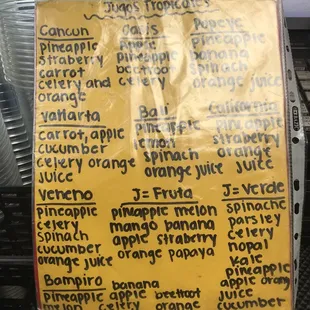 Jugos Tropicales
Cancun
pineapple
straberry
carrot
celery and
orange
Oasis
Apple
pineapple
beetroot
celery
Popeye
pineapple
banana
spinach
orange juice
Vallarta
carrot, apple
cucumber
celery orange
juice
Bali
pineapple
lemon
spinach
orange juice
California
pineapple
straberry
orange
juice
Veneno
pineapple
celery
spinach
cucumber
orange juice
J=Fruta
pineapple melon
mango banana
apple straberry
orange papaya
J=Verde
spinache
parsley
celery
nopal
kale
pineapple
apple orange
juice
cucumber
Bampiro
pineapple apple beetroot
melon celery orange
banana